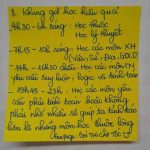 3. Khung giờ học hiệu quả
4h30 - 6h sáng: Học thuộc
Học lý thuyết
- 7h15 - 10h sáng: Học các môn XH
(Văn, Sử, Địa, GDCD)
- 14h - 16h30 chiều: Học các môn TN
yêu cầu suy luận, logic và tính toán
- 19h45 - 23h: Học các môn yêu
cầu phải tính toán hoặc không
phải nhớ nhiều sẽ giúp ta tỉnh táo
hơn là những môn học thuộc lòng
Fanpage: ÔN THI CẤP TỐC